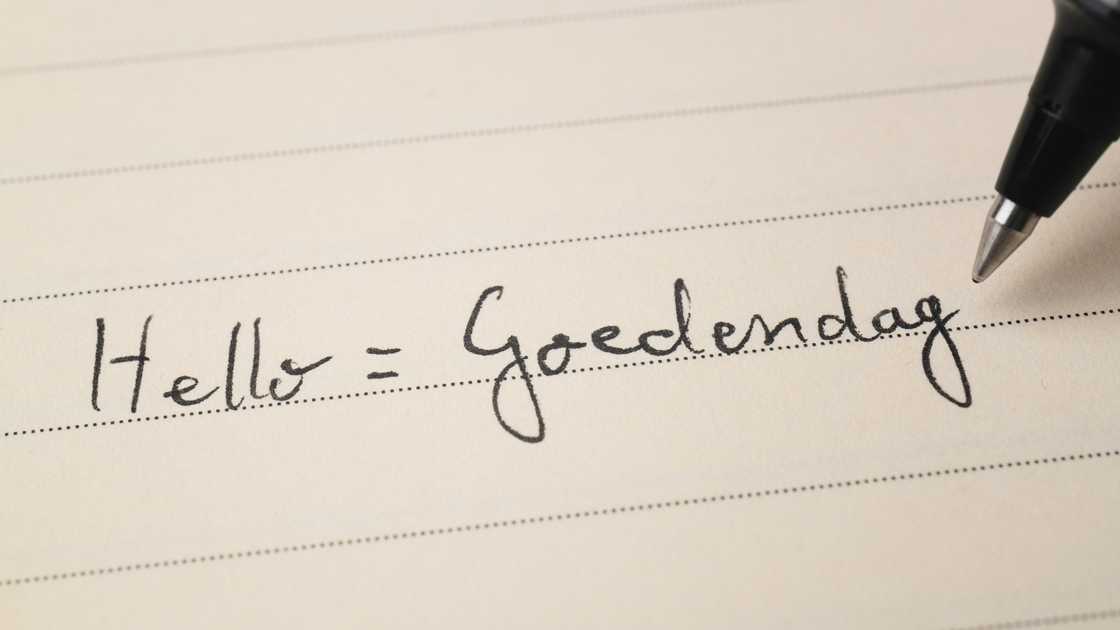 Hello = Goedendag